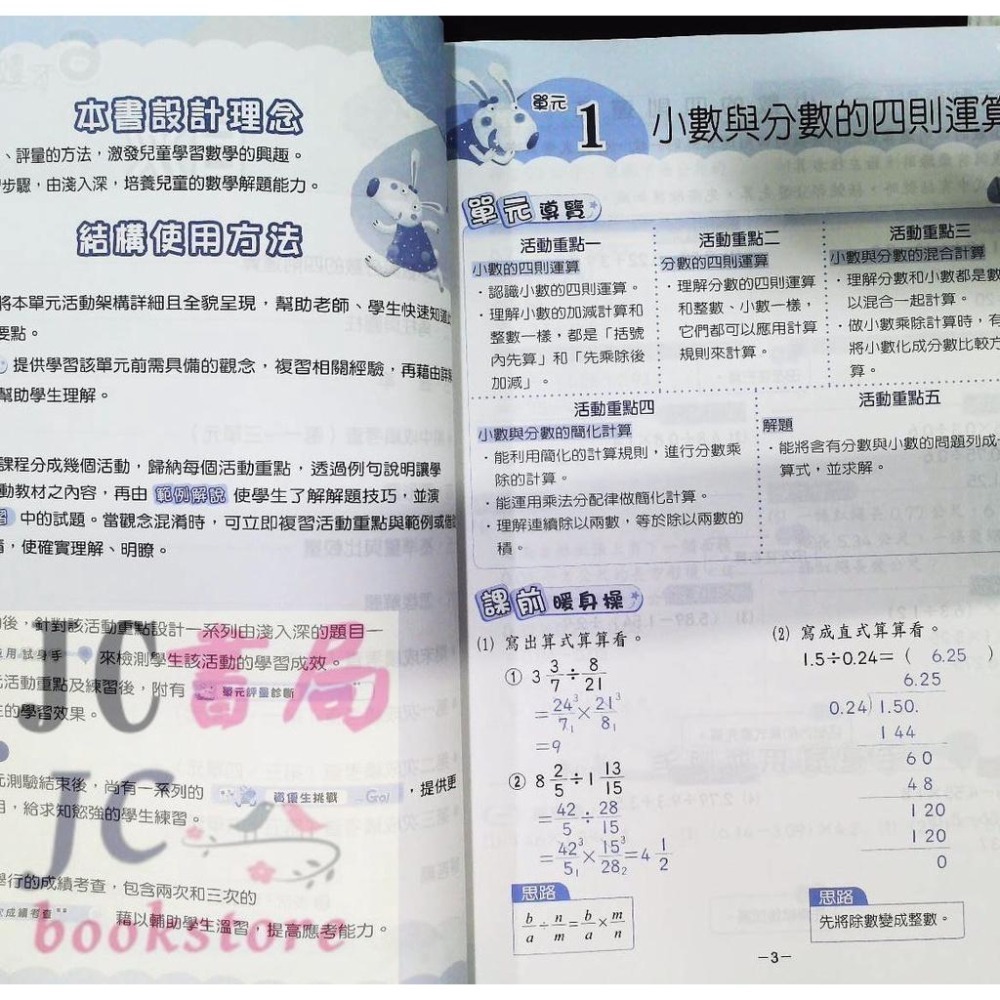 本書設計理念
、評量的方法，激發兒童學習數學的興趣。
步驟，由淺入深，培養兒童的數學解題能力。
結構使用方法
將本單元活動架構詳細且全貌呈現，幫助老師、學生快速知道
要點。
提供學習該單元前需具備的觀念，複習相關經驗，再藉由
幫助學生理解。
課程分成幾個活動，歸納每個活動重點，透過例句說明讓學
動教材之內容，再由 範例解說 使學生了解解題技巧，並演
習 中的試題。當觀念混淆時，可立即複習活動重點與範例或
，使確實理解、明瞭。
後，針對該活動重點設計一系列由淺入深的題目—
應用試身手 來檢測學生該活動的學習成效。
元活動重點及練習後，附有 單元評量診斷
的學習效果。
元測驗結束後，尚有一系列的 資優生挑戰 Go! ，提供更
，給求知慾強的學生練習。
舉行的成績考查，包含兩次和三次的
次成績考查 藉以輔助學生溫習，提高應考能力。
JC書局
JC
bookstore
單元
1 小數與分數的四則運算
單元導覽
活動重點一
小數的四則運算
·認識小數的四則運算。
·理解小數的加減計算和
整數一樣，都是「括號
內先算」和「先乘除後
加減」。
活動重點二
分數的四則運算
·理解分數的四則運算
和整數、小數一樣，
它們都可以應用計算
規則來計算。
活動重點三
小數與分數的混合計算
·理解分數和小數都是數
以混合一起計算。
·做小數乘除計算時，有
將小數化成分數比較方
算。
活動重點四
小數與分數的簡化計算
·能利用簡化的計算規則，進行分數乘
除的計算。
·能運用乘法分配律做簡化計算。
·理解連續除以兩數，等於除以兩數的
積。
活動重點五
解題
·能將含有分數與小數的問題列成
算式，並求解。
課前暖身操
(1) 寫出算式算算看。
① 3 3/7 ÷ 8/21
= 24³/7₁ × 21³/8₁
=9
② 8 2/5 ÷ 1 13/15
= 42/5 ÷ 28/15
= 42³/5₁ × 15³/28₂ = 4 1/2
思路
b/a ÷ n/m = b/a × m/n
(2) 寫成直式算算看。
1.5÷0.24＝（ 6.25 ）
6.25
0.24)1.50.
1 44
6 0
4 8
1 20
1 20
0
思路
先將除數變成整數。
−3−